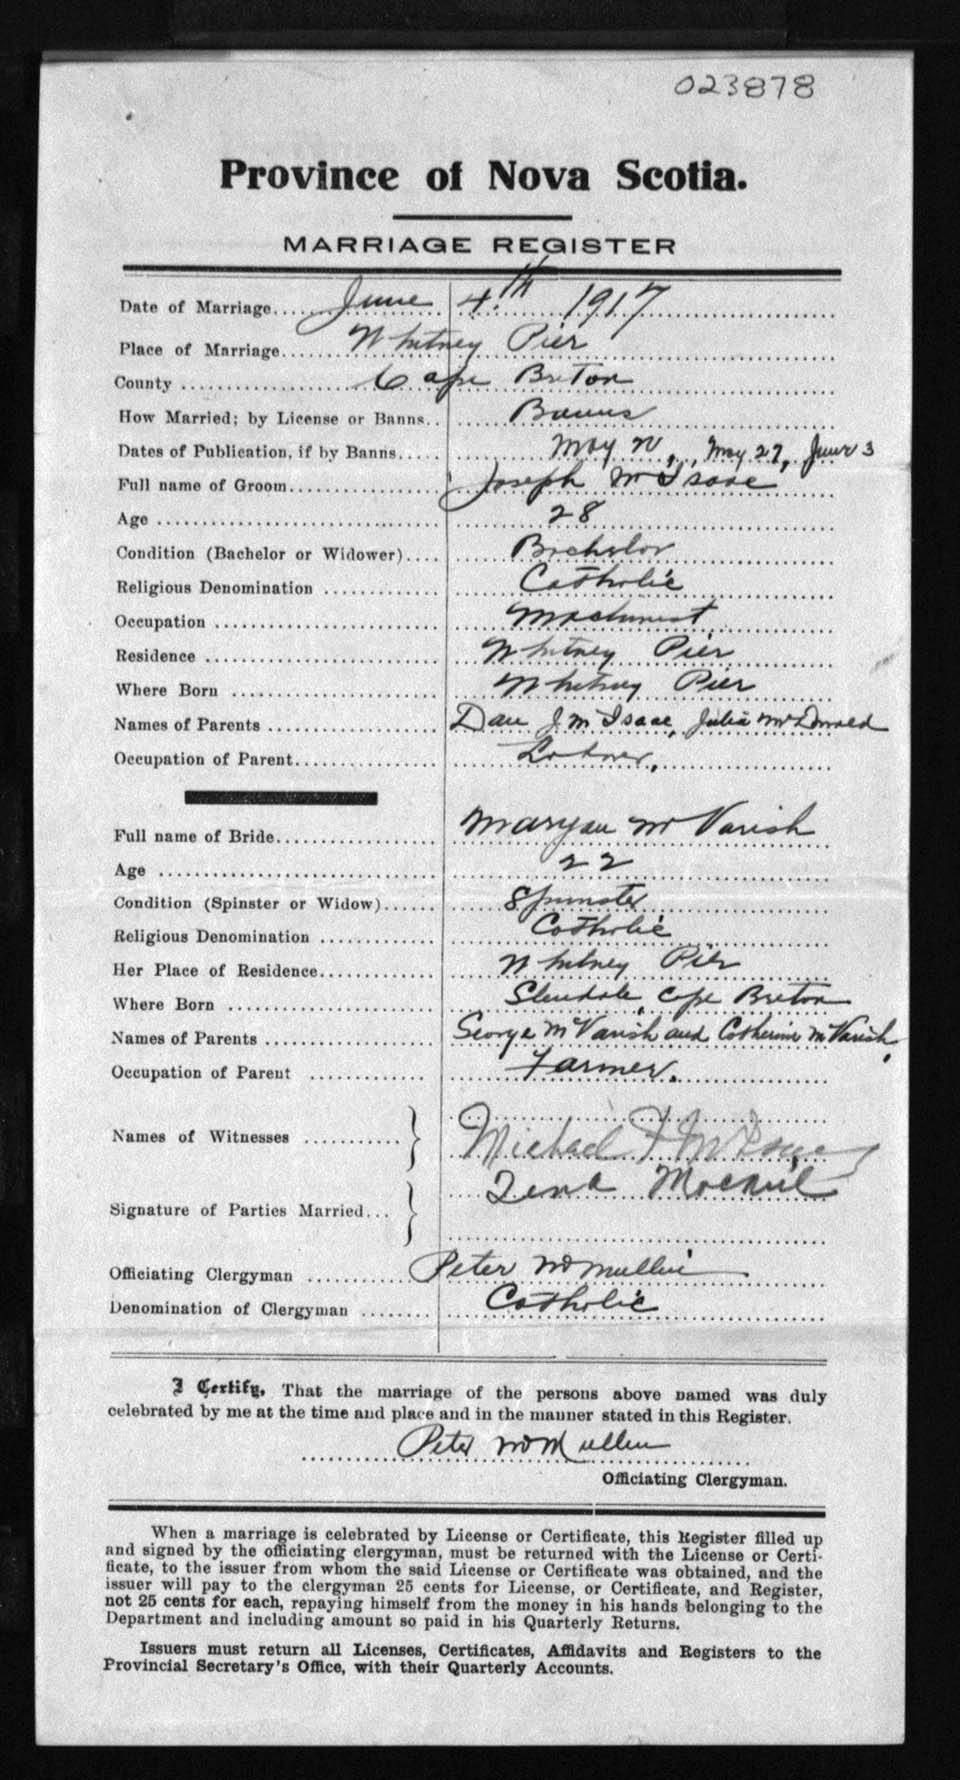 023878
Province of Nova Scotia.
MARRIAGE REGISTER
Date of Marriage June 4th 1917
Place of Marriage Whitney Pier
County Cape Breton
How Married; by License or Banns.. Banns
Dates of Publication, if by Banns May 20, May 27, June 3
Full name of Groom Joseph McIsaac
Age 28
Condition (Bachelor or Widower) Bachelor
Religious Denomination Catholic
Occupation Machinist
Residence Whitney Pier
Where Born Whitney Pier
Names of Parents Dan J. McIsaac, Julia McDonald
Occupation of Parent Laborer.
Full name of Bride Maryan McVarish
Age 22
Condition (Spinster or Widow) Spinster
Religious Denomination Catholic
Her Place of Residence Whitney Pier
Where Born Glendale, Cape Breton
Names of Parents George McVarish and Catherine McVarish,
Occupation of Parent Farmer.
Names of Witnesses Michael
Signature of Parties Married...
Officiating Clergyman Peter McMullin
Denomination of Clergyman Catholic
I Certify, That the marriage of the persons above named was duly
celebrated by me at the time and place and in the manner stated in this Register.
Peter McMullen
Officiating Clergyman.
When a marriage is celebrated by License or Certificate, this Register filled up
and signed by the officiating clergyman, must be returned with the License or Certi-
ficate, to the issuer from whom the said License or Certificate was obtained, and the
issuer will pay to the clergyman 25 cents for License, or Certificate, and Register,
not 25 cents for each, repaying himself from the money in his hands belonging to the
Department and including amount so paid in his Quarterly Returns.
Issuers must return all Licenses, Certificates, Affidavits and Registers to the
Provincial Secretary's Office, with their Quarterly Accounts.